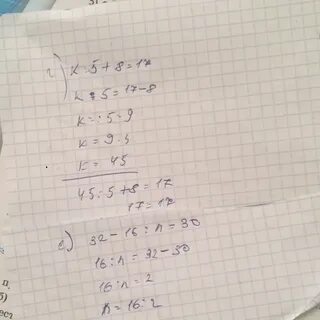 г) k : 5 + 8 = 17
k : 5 = 17 - 8
k = : 5 = 9
k = 9 · 5
k = 45
45 : 5 + 8 = 17
17 = 17
е) 32 - 16 : n = 30
16 : n = 32 - 30
16 : n = 2
n = 16 : 2